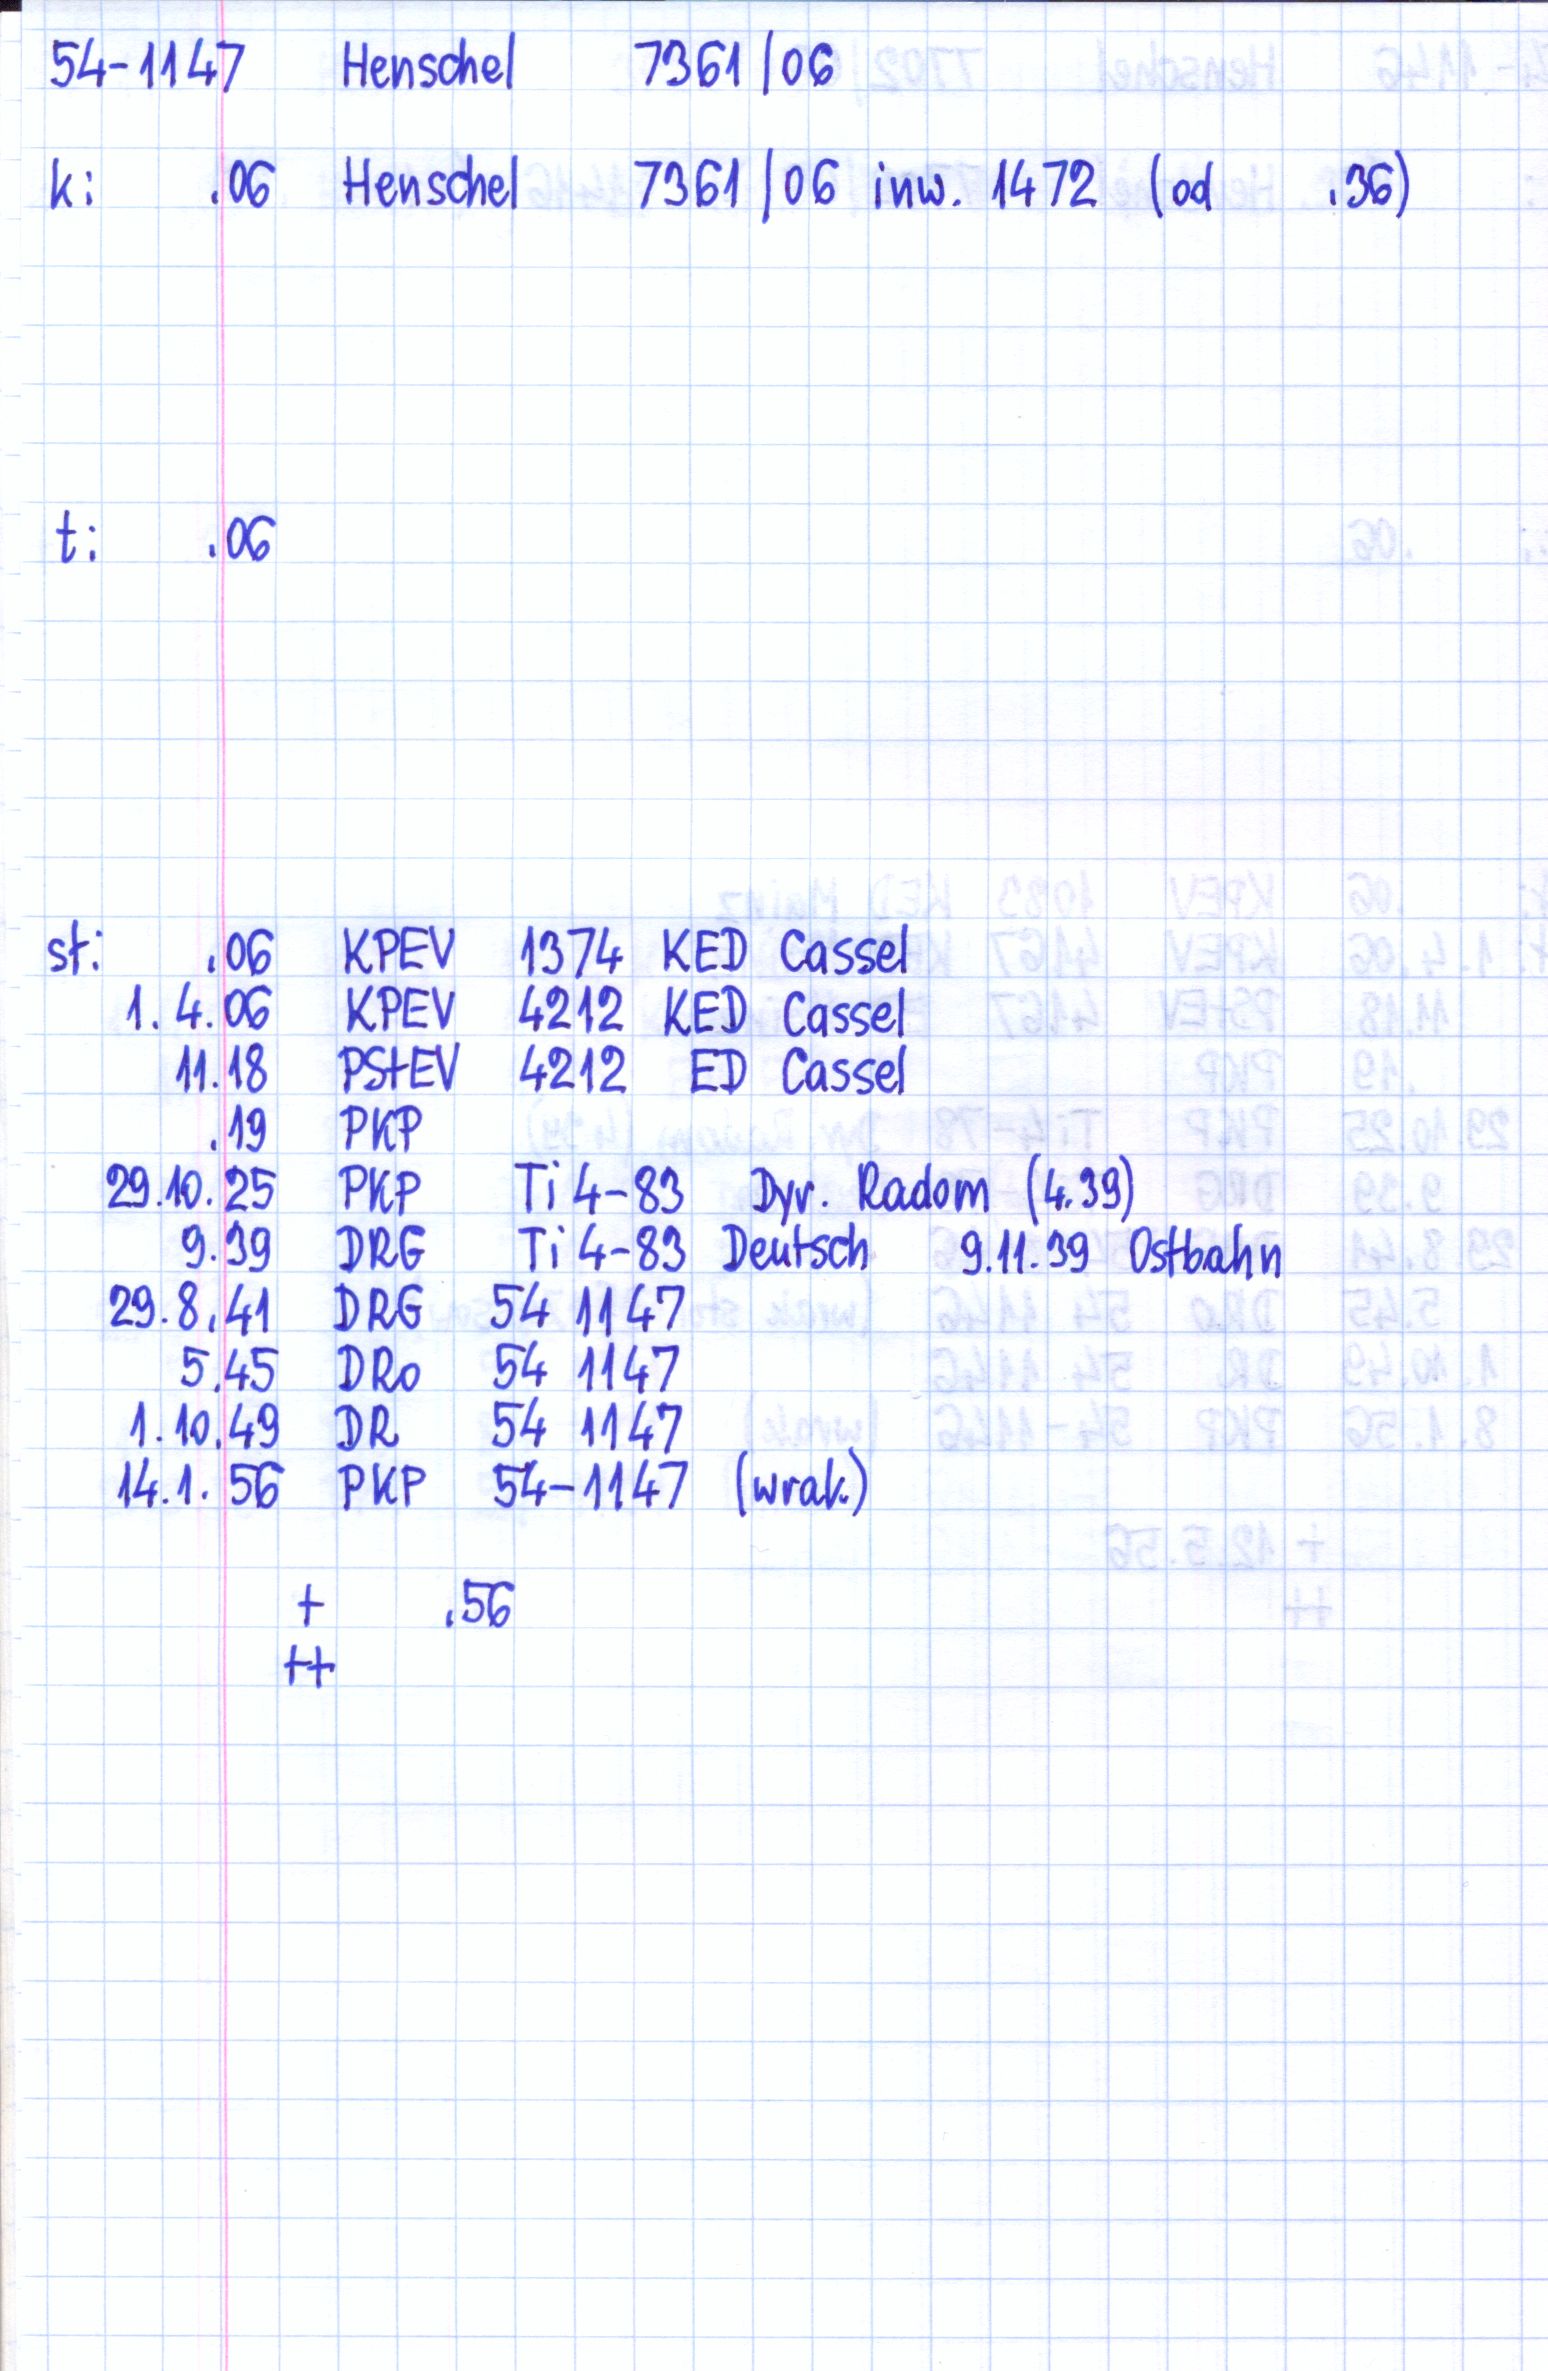 54-1147 Henschel 7361/06
k: .06 Henschel 7361/06 inw. 1472 (od .36)
t: .06
st: .06 KPEV 1374 KED Cassel
1.4.06 KPEV 4212 KED Cassel
11.18 PStEV 4212 ED Cassel
.19 PKP
29.10.25 PKP Ti4-83 Dyr. Radom (4.39)
9.39 DRG Ti4-83 Deutsch 9.11.39 Ostbahn
29.8.41 DRG 54 1147
5.45 DRo 54 1147
1.10.49 DR 54 1147
14.1.56 PKP 54-1147 (wrak)
+ .56
++